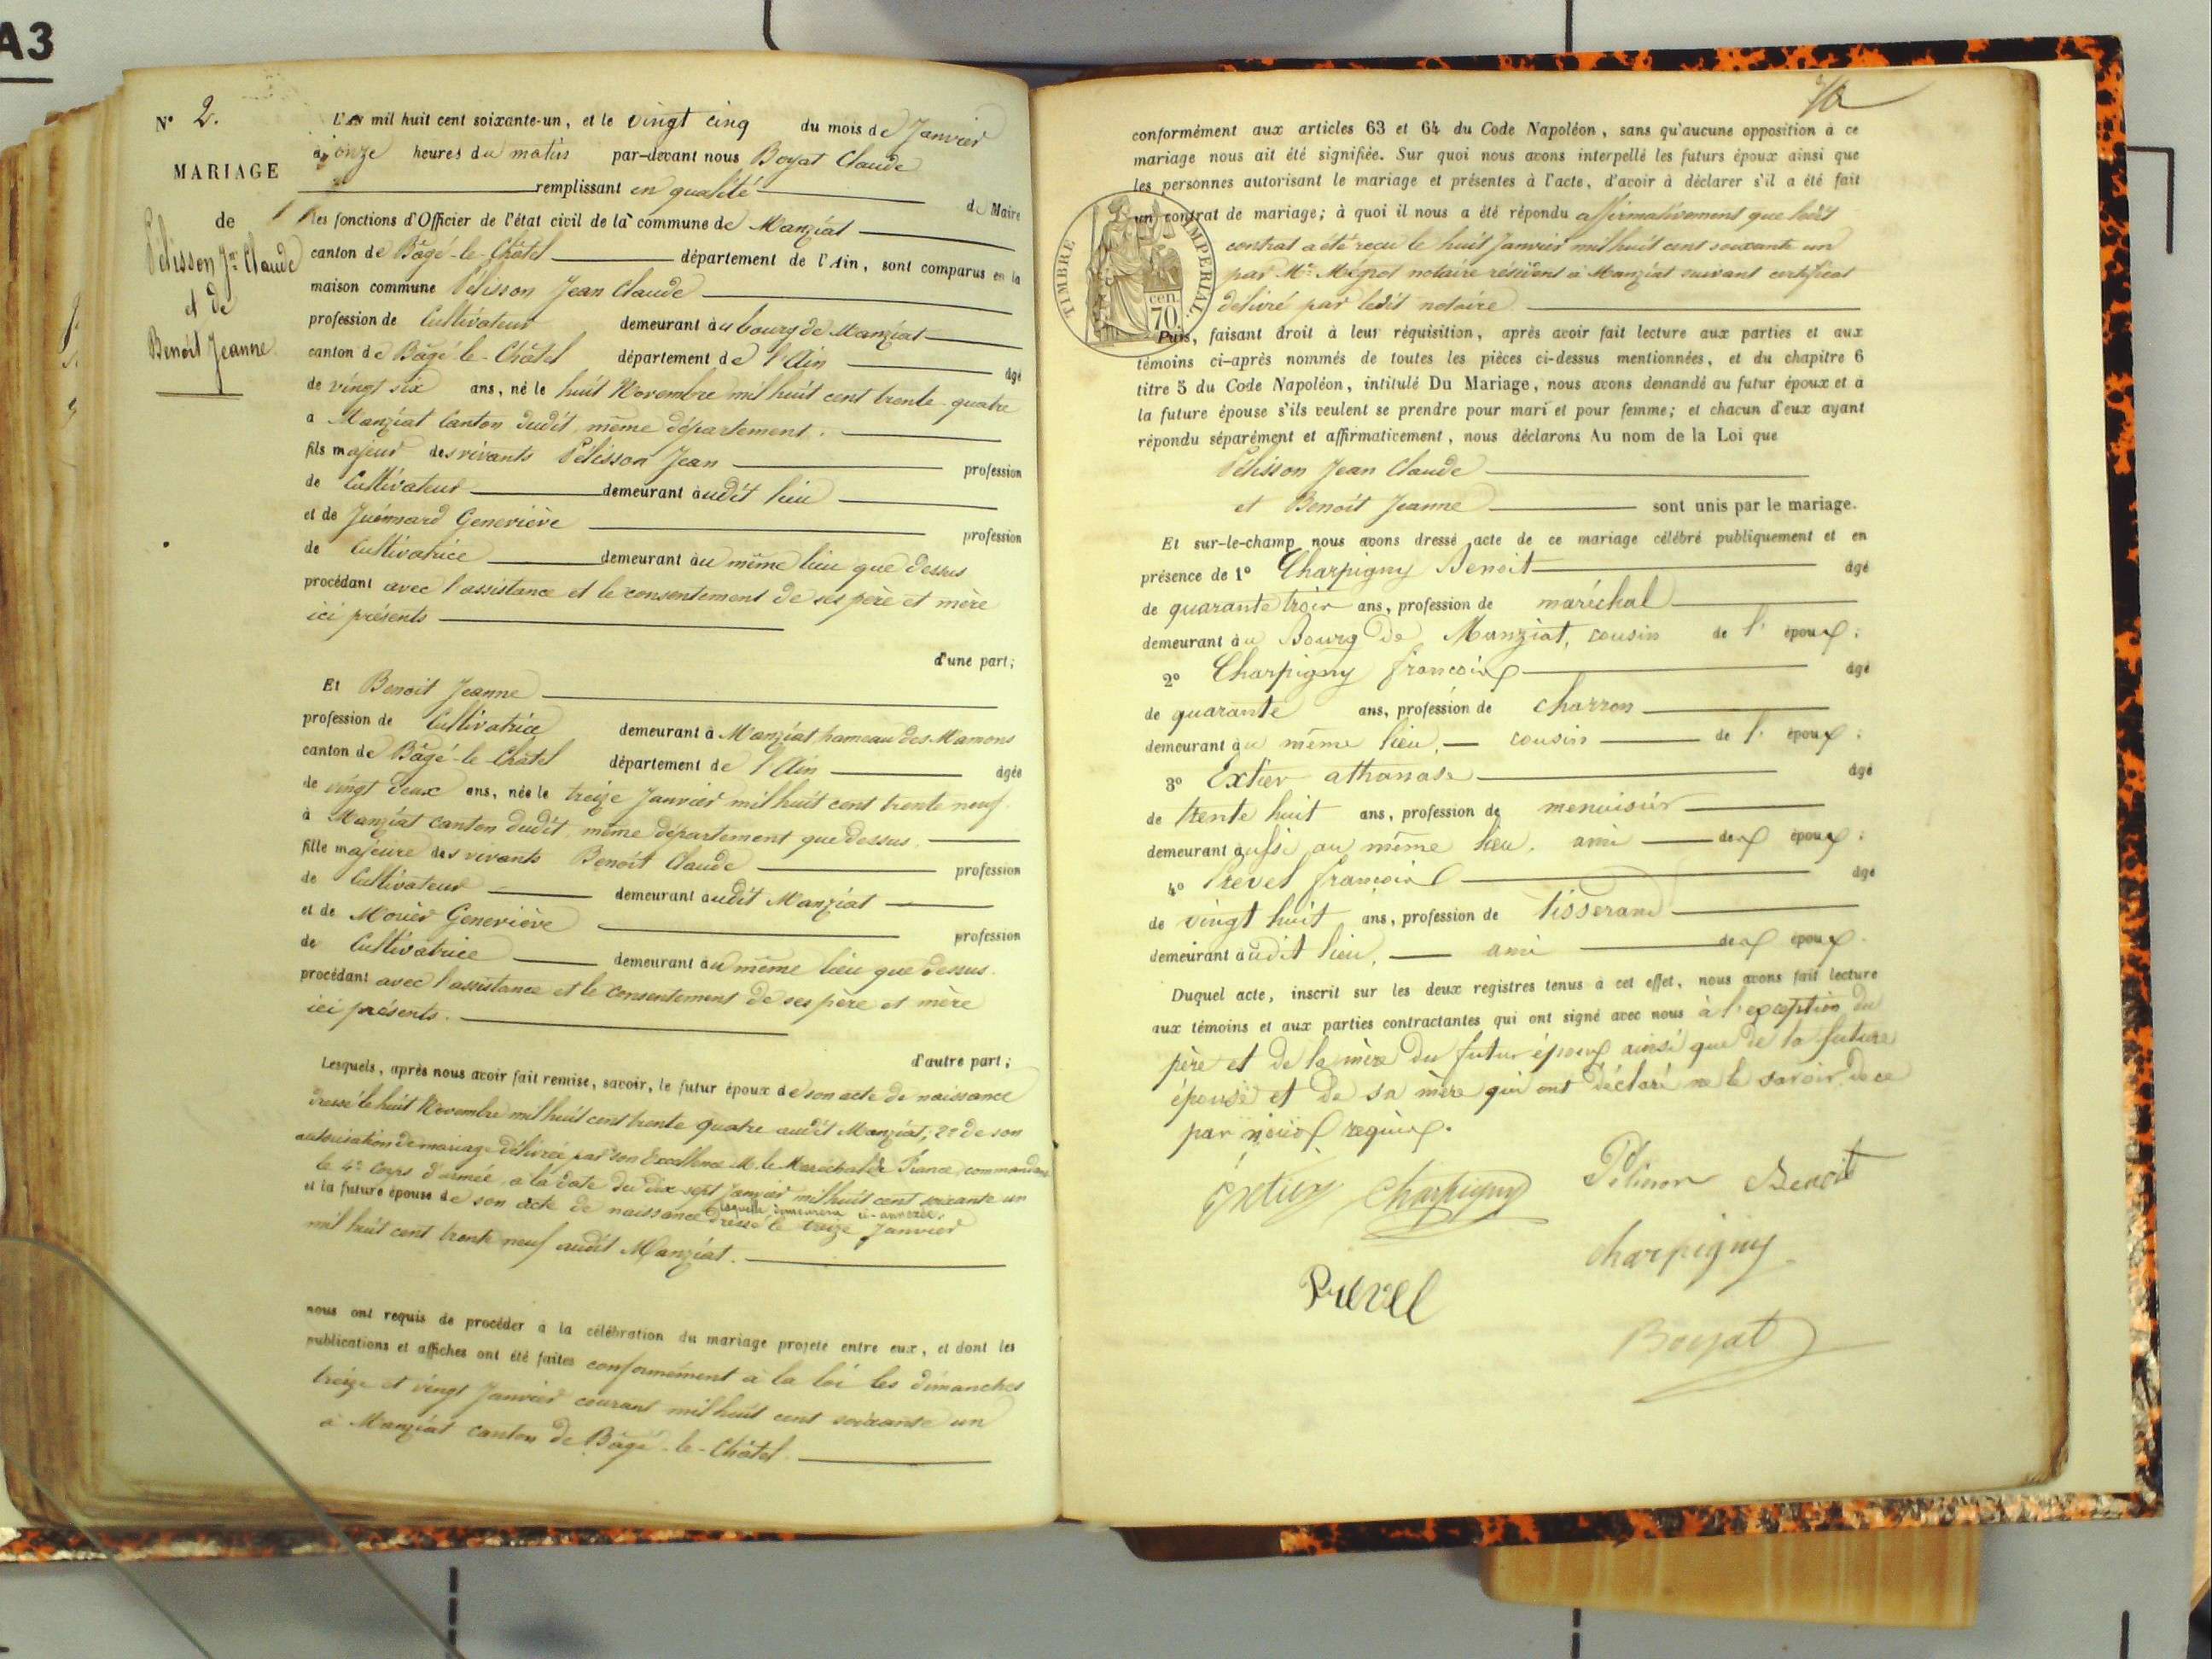 A3
N° 2.
MARIAGE
de
Pélisson Jn Claude
et de
Benoît Jeanne
L'an mil huit cent soixante-un, et le vingt cinq du mois de Janvier
à onze heures du matin par-devant nous Boyat Claude
remplissant en qualité de Maire
les fonctions d'Officier de l'état civil de la commune de Manziat
canton de Bâgé-le-Châtel département de l'Ain, sont comparus en la
maison commune Pélisson Jean Claude
profession de Cultivateur demeurant au bourg de Manziat
canton de Bâgé-le-Châtel département de l'Ain âgé
de vingt six ans, né le huit Novembre mil huit cent trente-quatre
à Manziat Canton dudit, même département.
fils majeur des vivants Pélisson Jean profession
de Cultivateur demeurant audit lieu
et de Geneviève profession
de Cultivatrice demeurant au même lieu que dessus
procédant avec l'assistance et le consentement de ses père et mère
ici présents
d'une part;
Et Benoit Jeanne
profession de Cultivatrice demeurant à Manziat hameau des Mamons
canton de Bâgé-le-Châtel département de l'Ain âgée
de vingt deux ans, née le treize Janvier mil huit cent trente neuf.
à Manziat canton dudit, même département que dessus.
fille majeure des vivants Benoît Claude profession
de Cultivateur demeurant audit Manziat
et de Geneviève profession
de Cultivatrice demeurant au même lieu que dessus.
procédant avec l'assistance et le consentement de ses père et mère
ici présents.
d'autre part;
Lesquels, après nous avoir fait remise, savoir, le futur époux de son acte de naissance
dressé le huit Novembre mil huit cent trente quatre audit Manziat, 2° de son
autorisation de mariage délivrée par son Excellence M. le Maréchal de France, commandant
le 4e Corps d'armée, à la date du dix sept Janvier mil huit cent soixante un
laquelle demeurera ci-annexée.
et la future épouse de son acte de naissance dressé le treize Janvier
mil huit cent trente neuf audit Manziat.
nous ont requis de procéder à la célébration du mariage projeté entre eux, et dont les
publications et affiches ont été faites conformément à la loi les dimanches
treize et vingt Janvier courant mil huit cent soixante un
à Manziat canton de Bâgé-le-Châtel.
conformément aux articles 63 et 64 du Code Napoléon, sans qu'aucune opposition à ce
mariage nous ait été signifiée. Sur quoi nous avons interpellé les futurs époux ainsi que
les personnes autorisant le mariage et présentes à l'acte, d'avoir à déclarer s'il a été fait
un contrat de mariage; à quoi il nous a été répondu affirmativement que ledit
contrat a été reçu le huit Janvier mil huit cent soixante un
par Me notaire résident à Manziat suivant certificat
délivré par ledit notaire
TIMBRE IMPÉRIAL.
70 cen.
Puis, faisant droit à leur réquisition, après avoir fait lecture aux parties et aux
témoins ci-après nommés de toutes les pièces ci-dessus mentionnées, et du chapitre 6
titre 5 du Code Napoléon, intitulé Du Mariage, nous avons demandé au futur époux et à
la future épouse s'ils veulent se prendre pour mari et pour femme; et chacun d'eux ayant
répondu séparément et affirmativement, nous déclarons Au nom de la Loi que
Pélisson Jean Claude
et Benoît Jeanne sont unis par le mariage.
Et sur-le-champ nous avons dressé acte de ce mariage célébré publiquement et en
présence de 1° Charpigny Benoit âgé
de quarante trois ans, profession de maréchal
demeurant au Bourg de Manziat, cousin de l' époux;
2° Charpigny françois âgé
de quarante ans, profession de charron
demeurant au même lieu, cousin de l' époux;
3° Extier athanase âgé
de trente huit ans, profession de menuisier
demeurant aussi au même lieu, ami des époux;
4° Prevel françois âgé
de vingt huit ans, profession de tisserand
demeurant audit lieu, ami des époux.
Duquel acte, inscrit sur les deux registres tenus à cet effet, nous avons fait lecture
aux témoins et aux parties contractantes qui ont signé avec nous à l'exception du
père et de la mère du futur époux ainsi que de la future
épouse et de sa mère qui ont déclaré ne le savoir, de ce
par nous requis.
Extier Charpigny Pélisson Benoit
charpigny
Prevel
Boyat